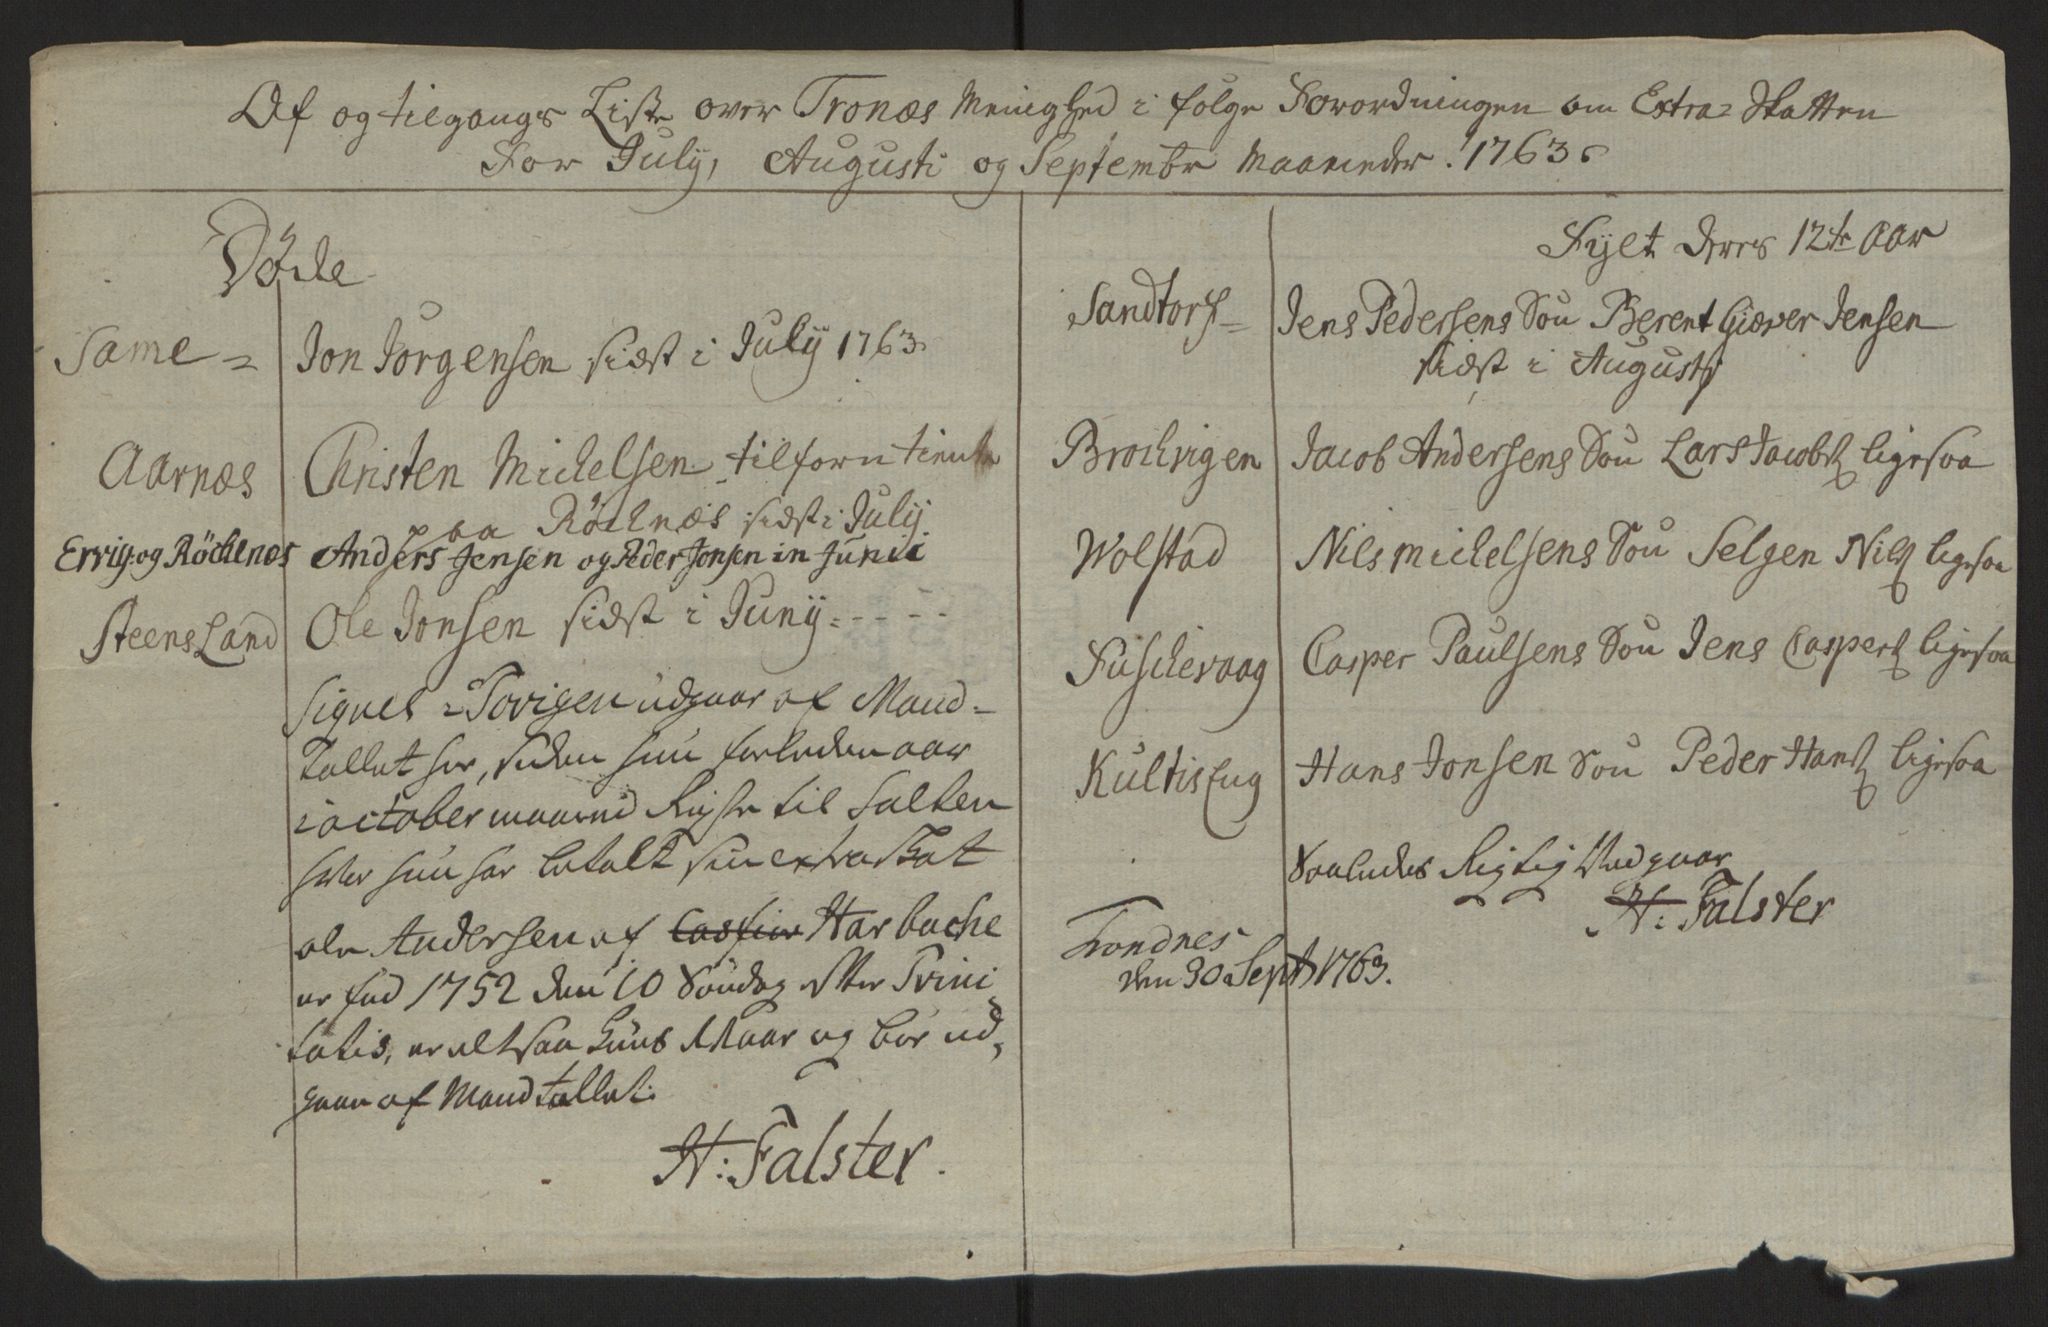 Af og tilgangs Liste over Tronæs Menighed i følge Forordningen om Extra= Skatten
For July, Augusti og Septembr Maaneder. 1763.
Døde
Same = Jon Jørgensen sidst i July 1763.
Aarnæs Christen Michelsen tilforn tiente
paa Röchnæs sidst i July
Ervig og Röchenæs Anders Jensen og Peder Jonsen in Junii
SteensLand Ole Jonsen sidst i Juny
Signes = Torigen udgaar af Mand=
tallet her, siden hun forleden aar
i october maaned Reyste til Salten
hvor hun har betalt sin extra Skat
ole Andersen af Harbache
er fød 1752 den 10 Søndag efter Trini
tatis, er altsaa Kuns Aar og bør ud,
gaae af Mandtallet.
H: Falster.
Fylt deres 12te Aar
Sandtorf= Jens Pedersens Søn Berent Giæver Jensen
sidst i Augusti
Brochvigen Jacob Andersens Søn Lars Jacobs ligesaa
Wolstad Nils Michelsens Søn Selgen Nils ligesaa
Fuschevaag Casper Paulsens Søn Jens Caspers ligesaa
KultisEng Hans Jonsen Søn Peder Hans ligesaa
Saaledes Rigtig Vedgaar
H: Falster
Trondnes
den 30 Sept 1763.